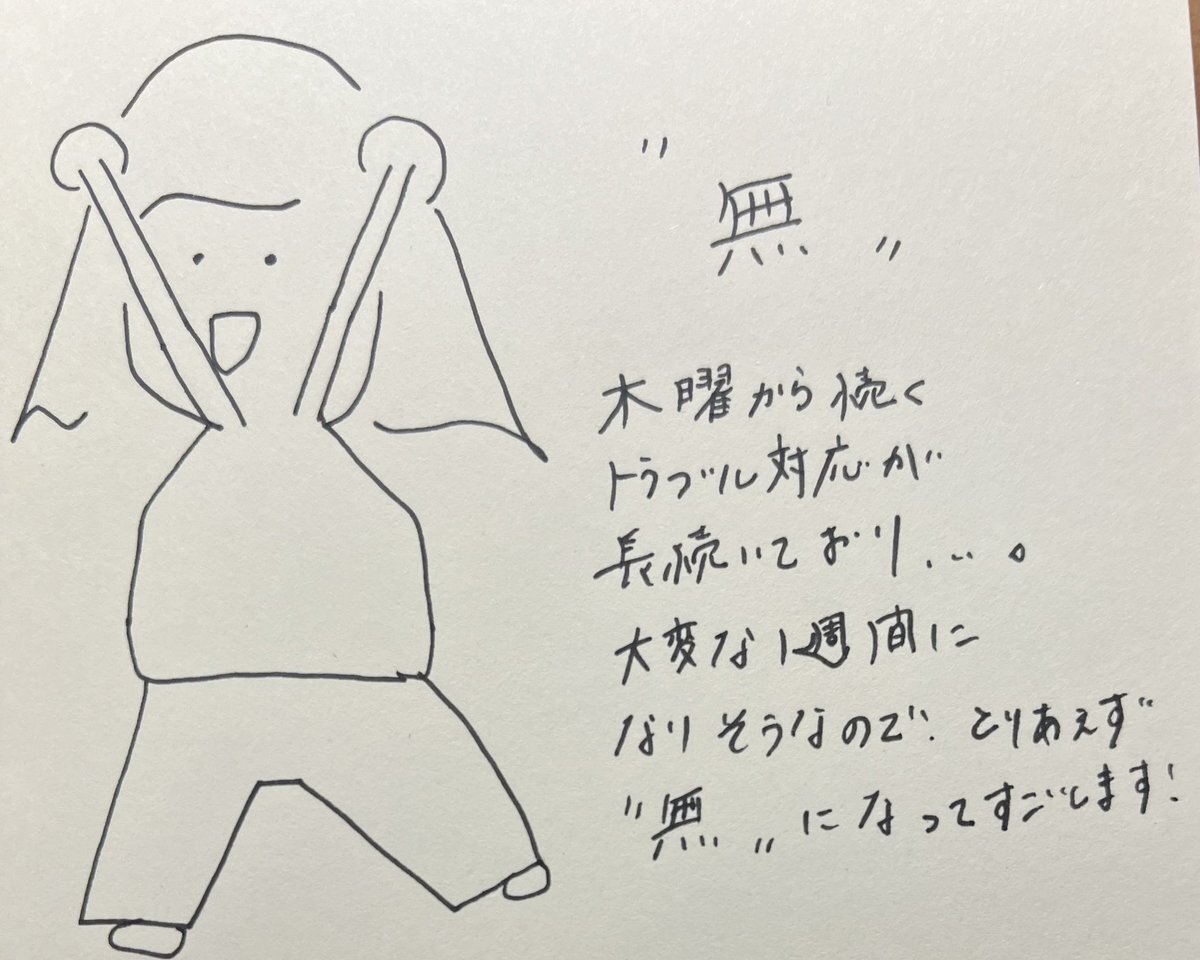 〃無〃
木曜から続く
トラブル対応が
長続いており...。
大変な1週間に
なりそうなので、とりあえず
〃無〃になってすごします!